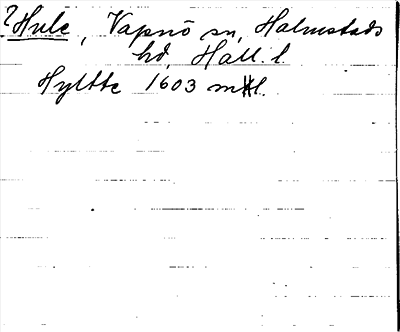 ?Hule, Vapnö sn, Halmstads
hd, Hall. l.
Hyltte 1603 mtl.